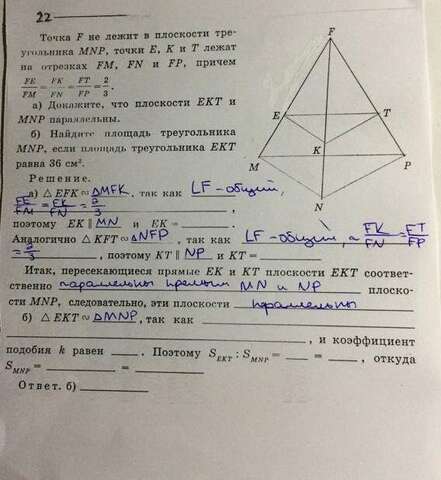 22
Точка F не лежит в плоскости тре-
угольника MNP, точки E, K и T лежат
на отрезках FM, FN и FP, причем
FE/FM = FK/FN = FT/FP = 2/3
а) Докажите, что плоскости EKT и
MNP параллельны.
б) Найдите площадь треугольника
MNP, если площадь треугольника EKT
равна 36 см².
F
E
T
K
M
P
N
Решение.
а) △ EFK ∾ △MFK, так как LF - общий,
FE/FM = FK/FN = 2/3 ,
поэтому EK ∥ MN и EK = ____.
Аналогично △ KFT ∾ △NFP, так как LF - общий, а FK/FN = FT/FP
= 2/3 , поэтому KT ∥ NP и KT = ____
Итак, пересекающиеся прямые EK и KT плоскости EKT соответ-
ственно параллельны прямым MN и NP плоско-
сти MNP, следовательно, эти плоскости параллельны
б) △ EKT ∾ △MNP, так как ____
____, и коэффициент
подобия k равен ____. Поэтому S_EKT : S_MNP = ____ = ____, откуда
S_MNP = ____ = ____
Ответ. б) ____